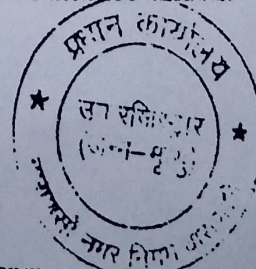 प्रधान कार्यालय
उप रजिस्ट्रार
(जन्म-मृत्यु)
नगर निगम